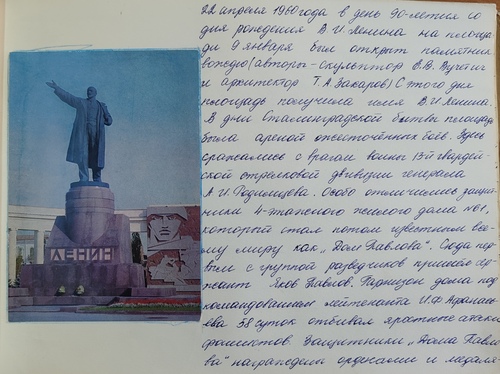 22 апреля 1960 года в день 90-летия со
дня рождения В.И. Ленина на площа-
ди 9 января был открыт памятник
вождю (авторы - скульптор В.В. Вучетич
и архитектор Т.А. Захаров) С этого дня
площадь получила имя В.И. Ленина.
В дни Сталинградской битвы площадь
была ареной ожесточённых боёв. Здесь
сражались с врагом воины 13й гвардей-
ской стрелковой дивизии генерала
А.И. Родимцева. Особо отличились защит-
ники 4-этажного жилого дома №1,
который стал потом известным все-
му миру как "Дом Павлова". Сюда пер-
вым с группой разведчиков пришёл сер-
жант Яков Павлов. Гарнизон дома под
командованием лейтенанта И.Ф. Афанась-
ева 58 суток отбивал яростные атаки
фашистов. Защитники "Дома Павло-
ва" награждены орденами и медаля-
ЛЕНИН